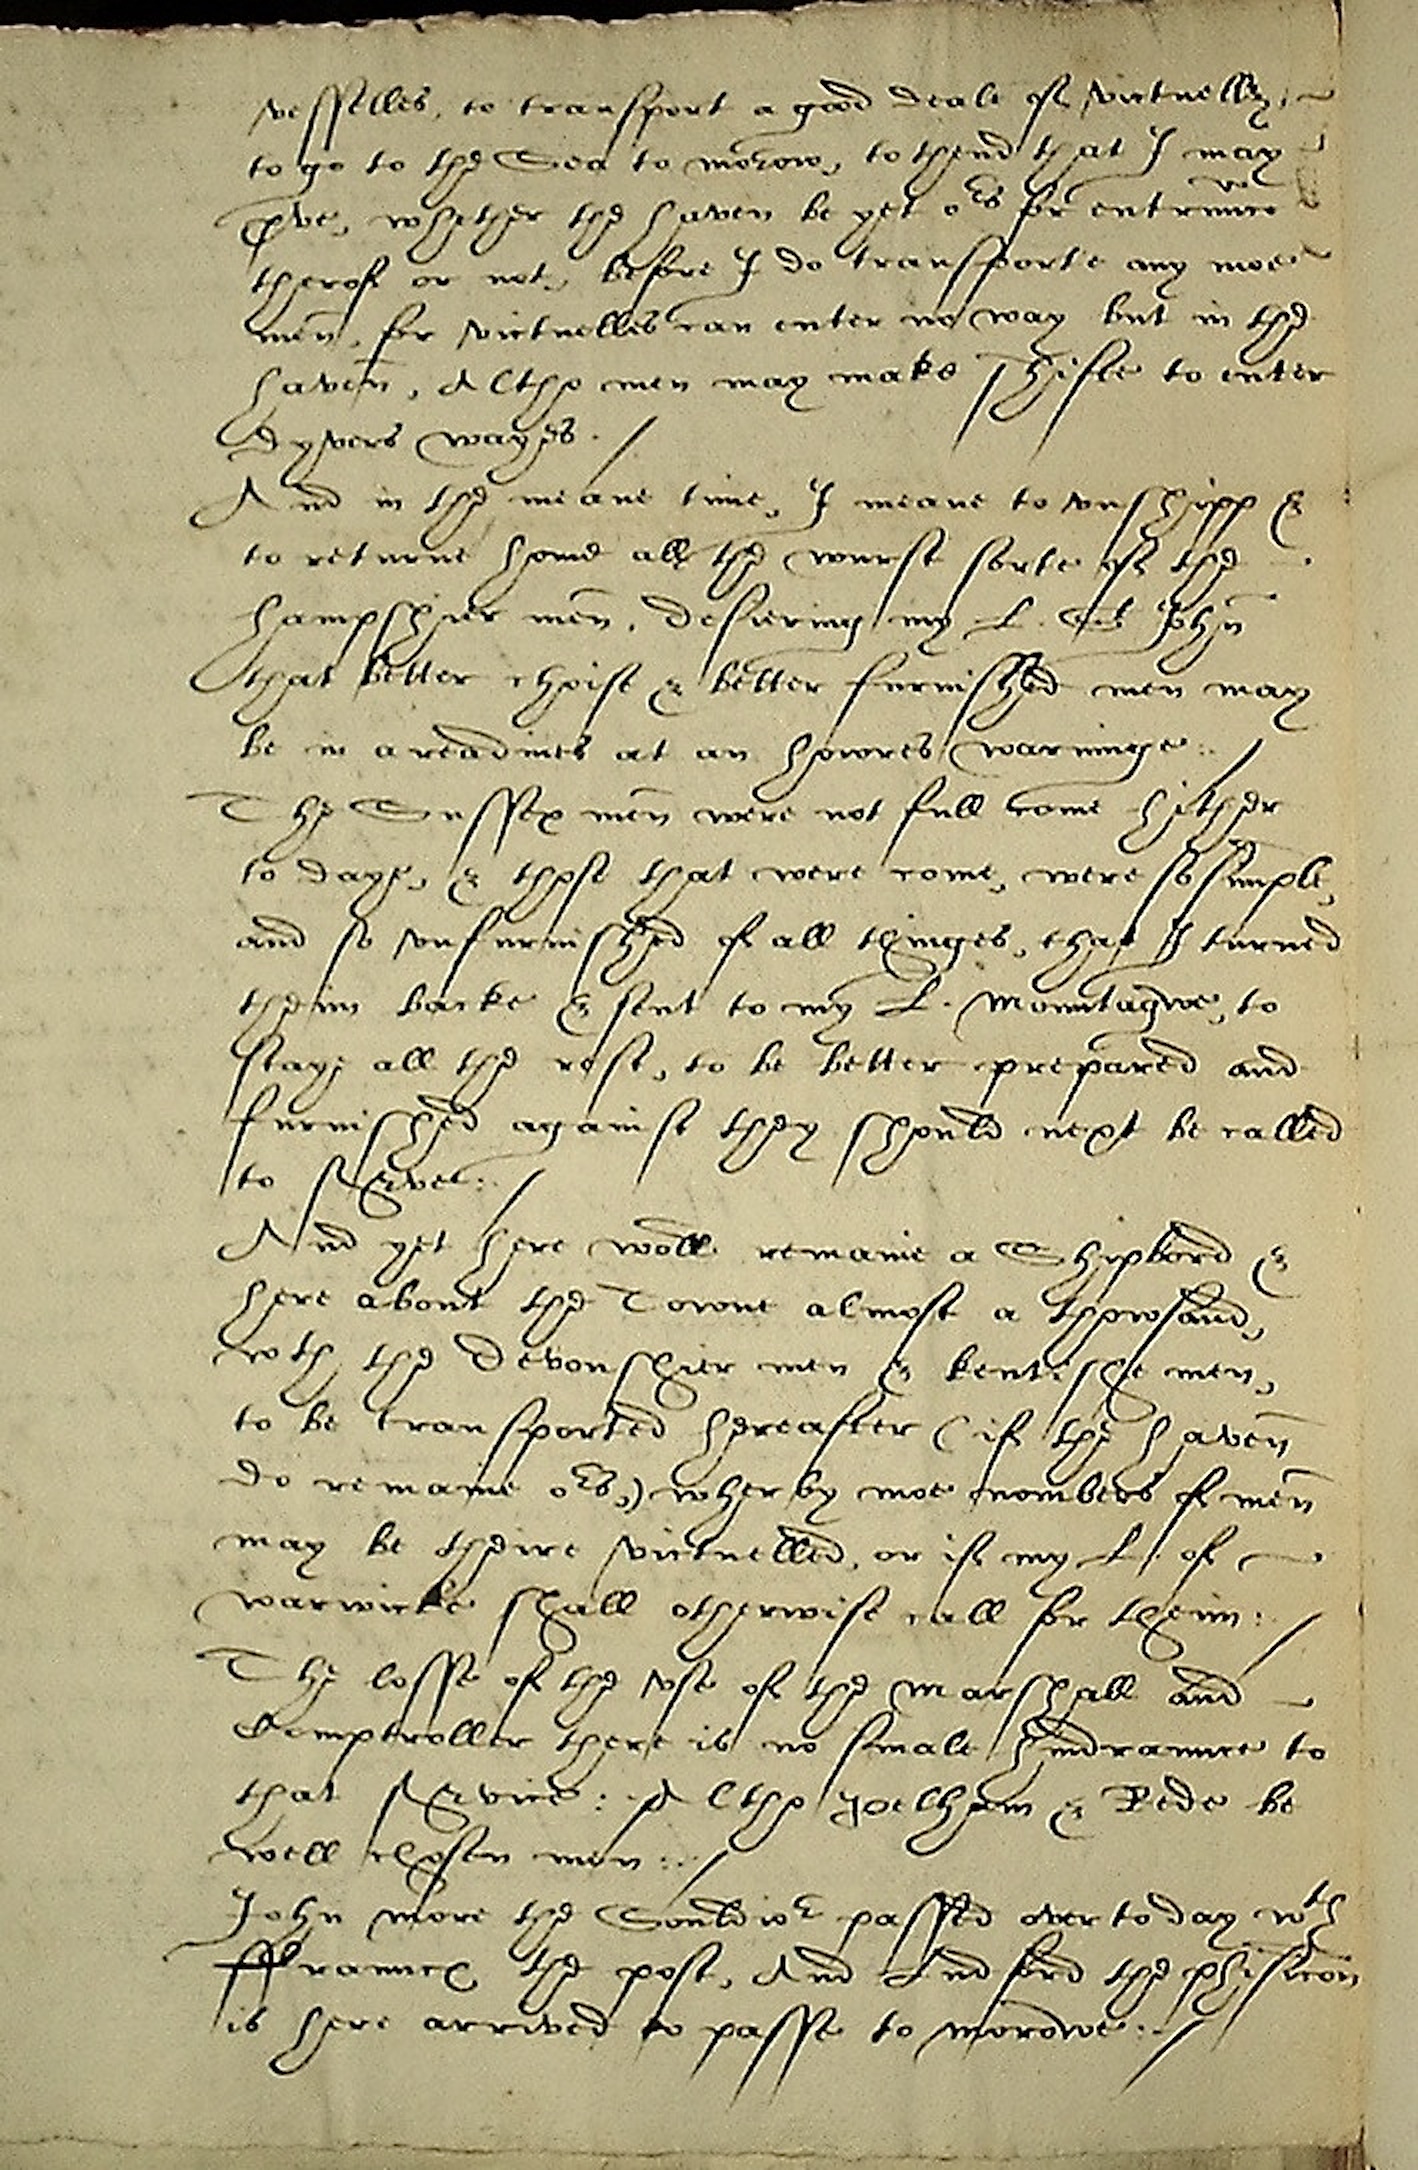 vesselles, to transport a good deale of victuelles,
to go to the Sea to morow, to thend that I may
prve, whether the haven be yet ors for entrance
therof or not, before I do transporte any moe
men, for victuelles can enter no way but in the
haven, Altho men may make shifte to enter
dyvers wayes. /
And in the meane time, I meane to vnshipp &
to returne home all the wurst sorte of the
hampshier men, desiering my L. St John
that better choise & better furnished men may
be in areadines at an howres warninge : /
The Sussex men were not full come hither
to daye, & those that were come, were so simple,
and so vnfurnished of all thinges, that I turned
theim backe & sent to my L. Mountagwe, to
staye all the rest, to be better prepared and
furnished against they should next be called
to serve : /
And yet here woll remaine a Shipbord &
here about the Towne almost a thowsand,
wth the Devonshier men & kentishe men,
to be transported hereafter (if the haven
do remaine ors,) wherby moe nombers of men
may be theire victuelled, or if my L. of
warwicke shall otherwise call for theim : /
The losse of the vse of the marshall and
Comptroller there is no smale hindraunce to
that service : Altho pelham & Rede be
well chosen men : /
John more the Souldior passed over to day wth
ffrauncs the post, And Ludford the phisicon
is here arrived to passe to morowe : /